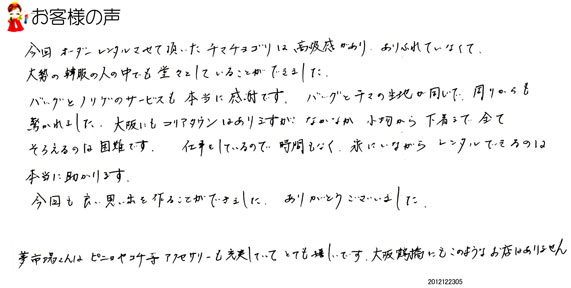 お客様の声
今回 オーダーレンタルさせて頂いた チマチョゴリは 高級感があり、ありふれていなくて、
大勢の韓服の人の中でも 堂々としていることができました。
バッグとノリゲのサービスも 本当に 感謝です。 バッグとチマの生地が同じで、周りからも
驚かれました。大阪にもコリアタウンはありますが なかなか 小物から 下着まで 全て
そろえるのは 困難です。 仕事をしているので 時間もなく、家にいながら レンタルできるのは
本当に助かります。
今回も 良い思い出を作ることができました。 ありがとうございました。
夢市場さんは ピニョやコチ等 アクセサリーも充実していて とても嬉しいです。大阪鶴橋にもこのようなお店はありません
2012122305